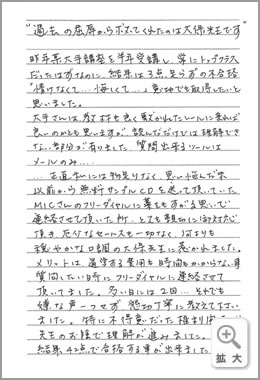 "過去の屈辱から
くれたのは大保先生です"
昨年某大手講座を半年受講し、常にトップクラス
だったはずなのに、結果は3点足らずの不合格
"情けなくて…悔しくて…意地でも取得したいと
思いました。
大手さんは、教材も良く教われたレールに乗れば
良いのかとも思いますが、読んだだけでは理解でき
ない部分が有りました。質問出来るツールは
メールのみ…
…正直私には物足りなく、思い悩んだ末
以前から無料サンプルCDを送って頂いていた
MICさんのフリーダイヤルに藁をもすがる思いで
連絡させて頂いた所、とても親切に御対応
頂き、厄介なセールスも一切なく、何よりも
穏やかな口調の大保先生に惹かれました。
メリットは、通学する費用も時間もかからない事
質問したい時にフリーダイヤルに連絡させて
頂いてました。多い日には2回…それでも
嫌な声一つせず、懇切丁寧に教えて下さい
ました。特に不得意だった
先生のお陰で理解が進みました。
結果42点で合格する事が出来ました
拡大